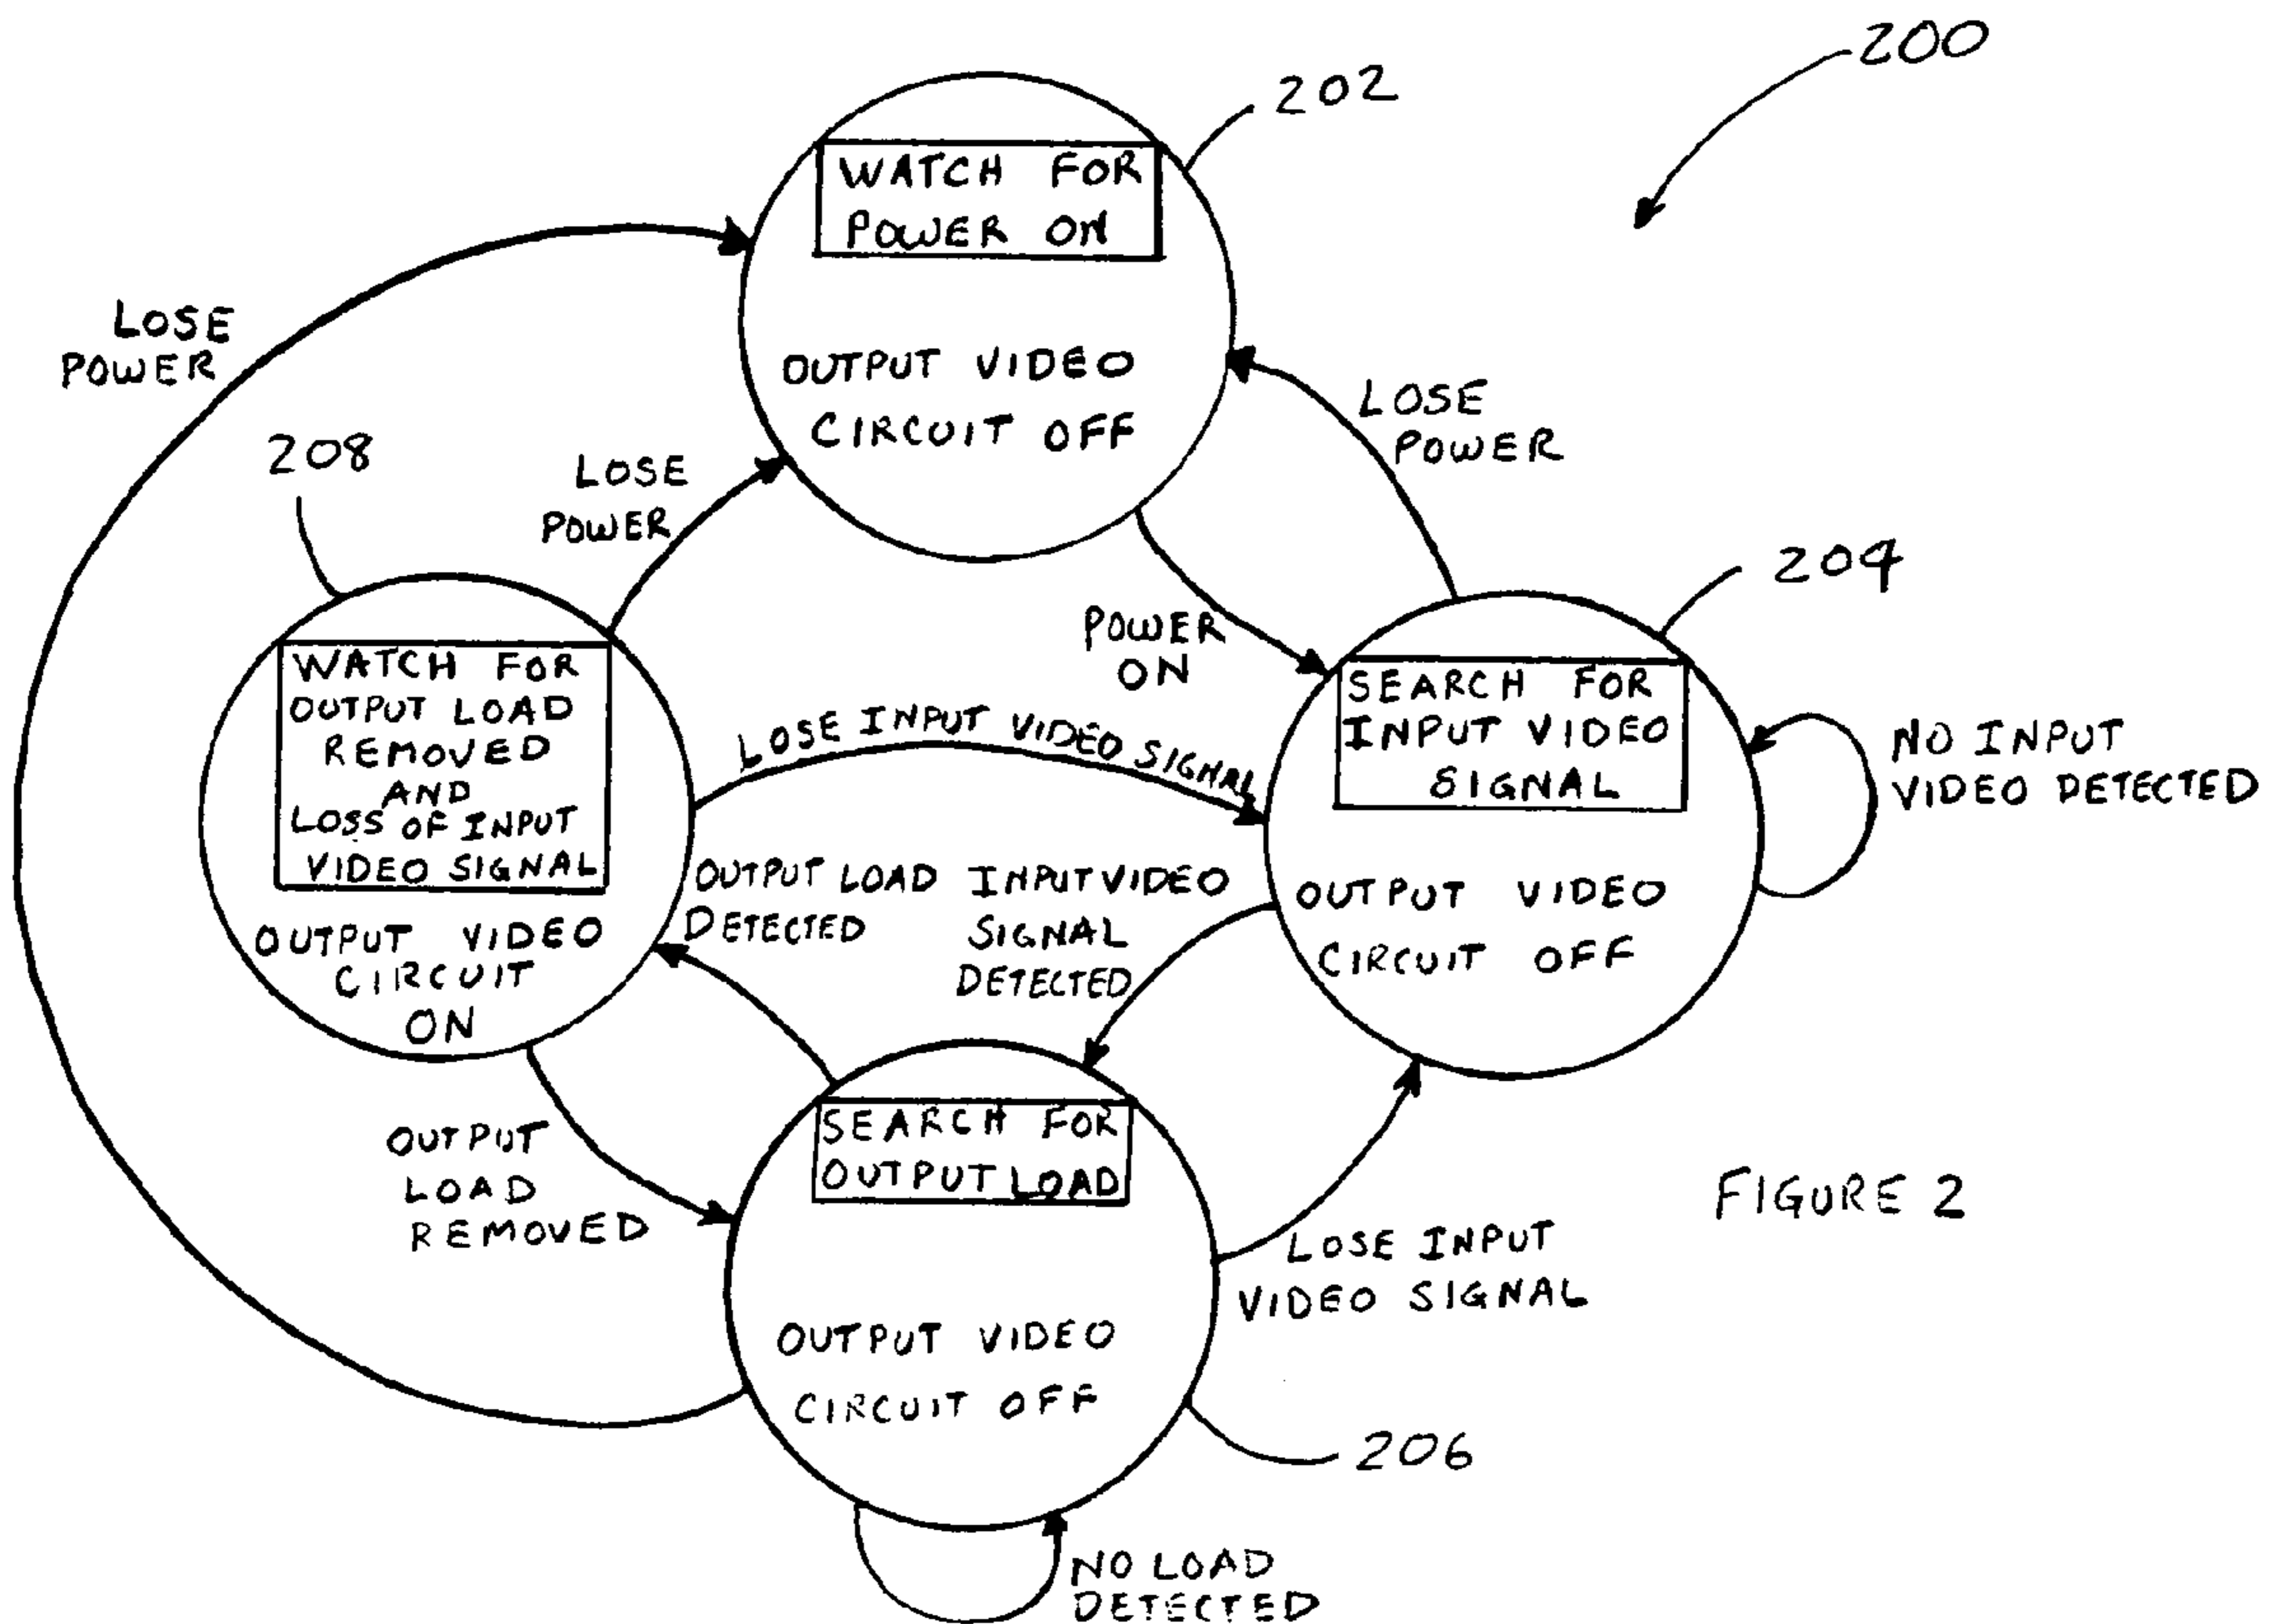 200
202
WATCH FOR
POWER ON
OUTPUT VIDEO
CIRCUIT OFF
LOSE
POWER
LOSE
POWER
208
LOSE
POWER
204
POWER
ON
WATCH FOR
OUTPUT LOAD
REMOVED
AND
LOSS OF INPUT
VIDEO SIGNAL
OUTPUT VIDEO
CIRCUIT
ON
LOSE INPUT VIDEO SIGNAL
SEARCH FOR
INPUT VIDEO
SIGNAL
OUTPUT VIDEO
CIRCUIT OFF
NO INPUT
VIDEO DETECTED
OUTPUT LOAD
DETECTED
INPUT VIDEO
SIGNAL
DETECTED
OUTPUT
LOAD
REMOVED
SEARCH FOR
OUTPUT LOAD
OUTPUT VIDEO
CIRCUIT OFF
LOSE INPUT
VIDEO SIGNAL
FIGURE 2
206
NO LOAD
DETECTED